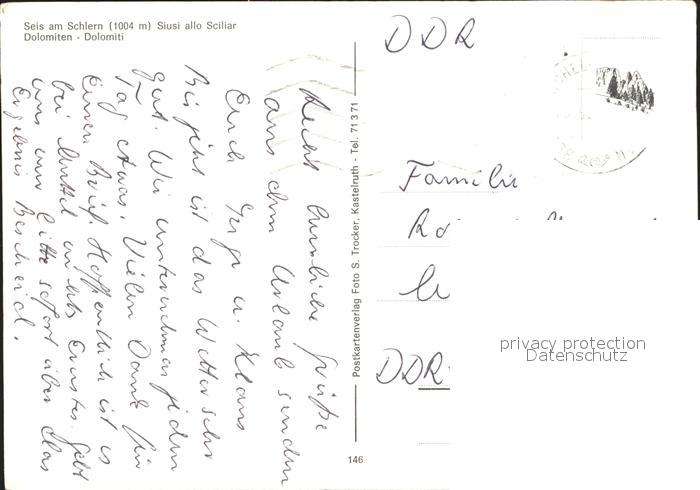 Seis am Schlern (1004 m) Siusi allo Sciliar
Dolomiten - Dolomiti
Recht herzliche Grüße
aus dem Urlaub senden
Euch Inge u. Klaus
Bis jetzt ist das Wetter sehr
gut. Wir unternehmen jeden
Tag etwas. Vielen Dank für
Einen Brief. Hoffentlich ist es
bei Muttel nichts Ernstes. Gebt
uns nur bitte sofort über das
Ergebnis Bescheid.
Postkartenverlag Foto S. Trocker, Kastelruth - Tel. 71371
146
DDR
Familie
DDR
privacy protection
Datenschutz